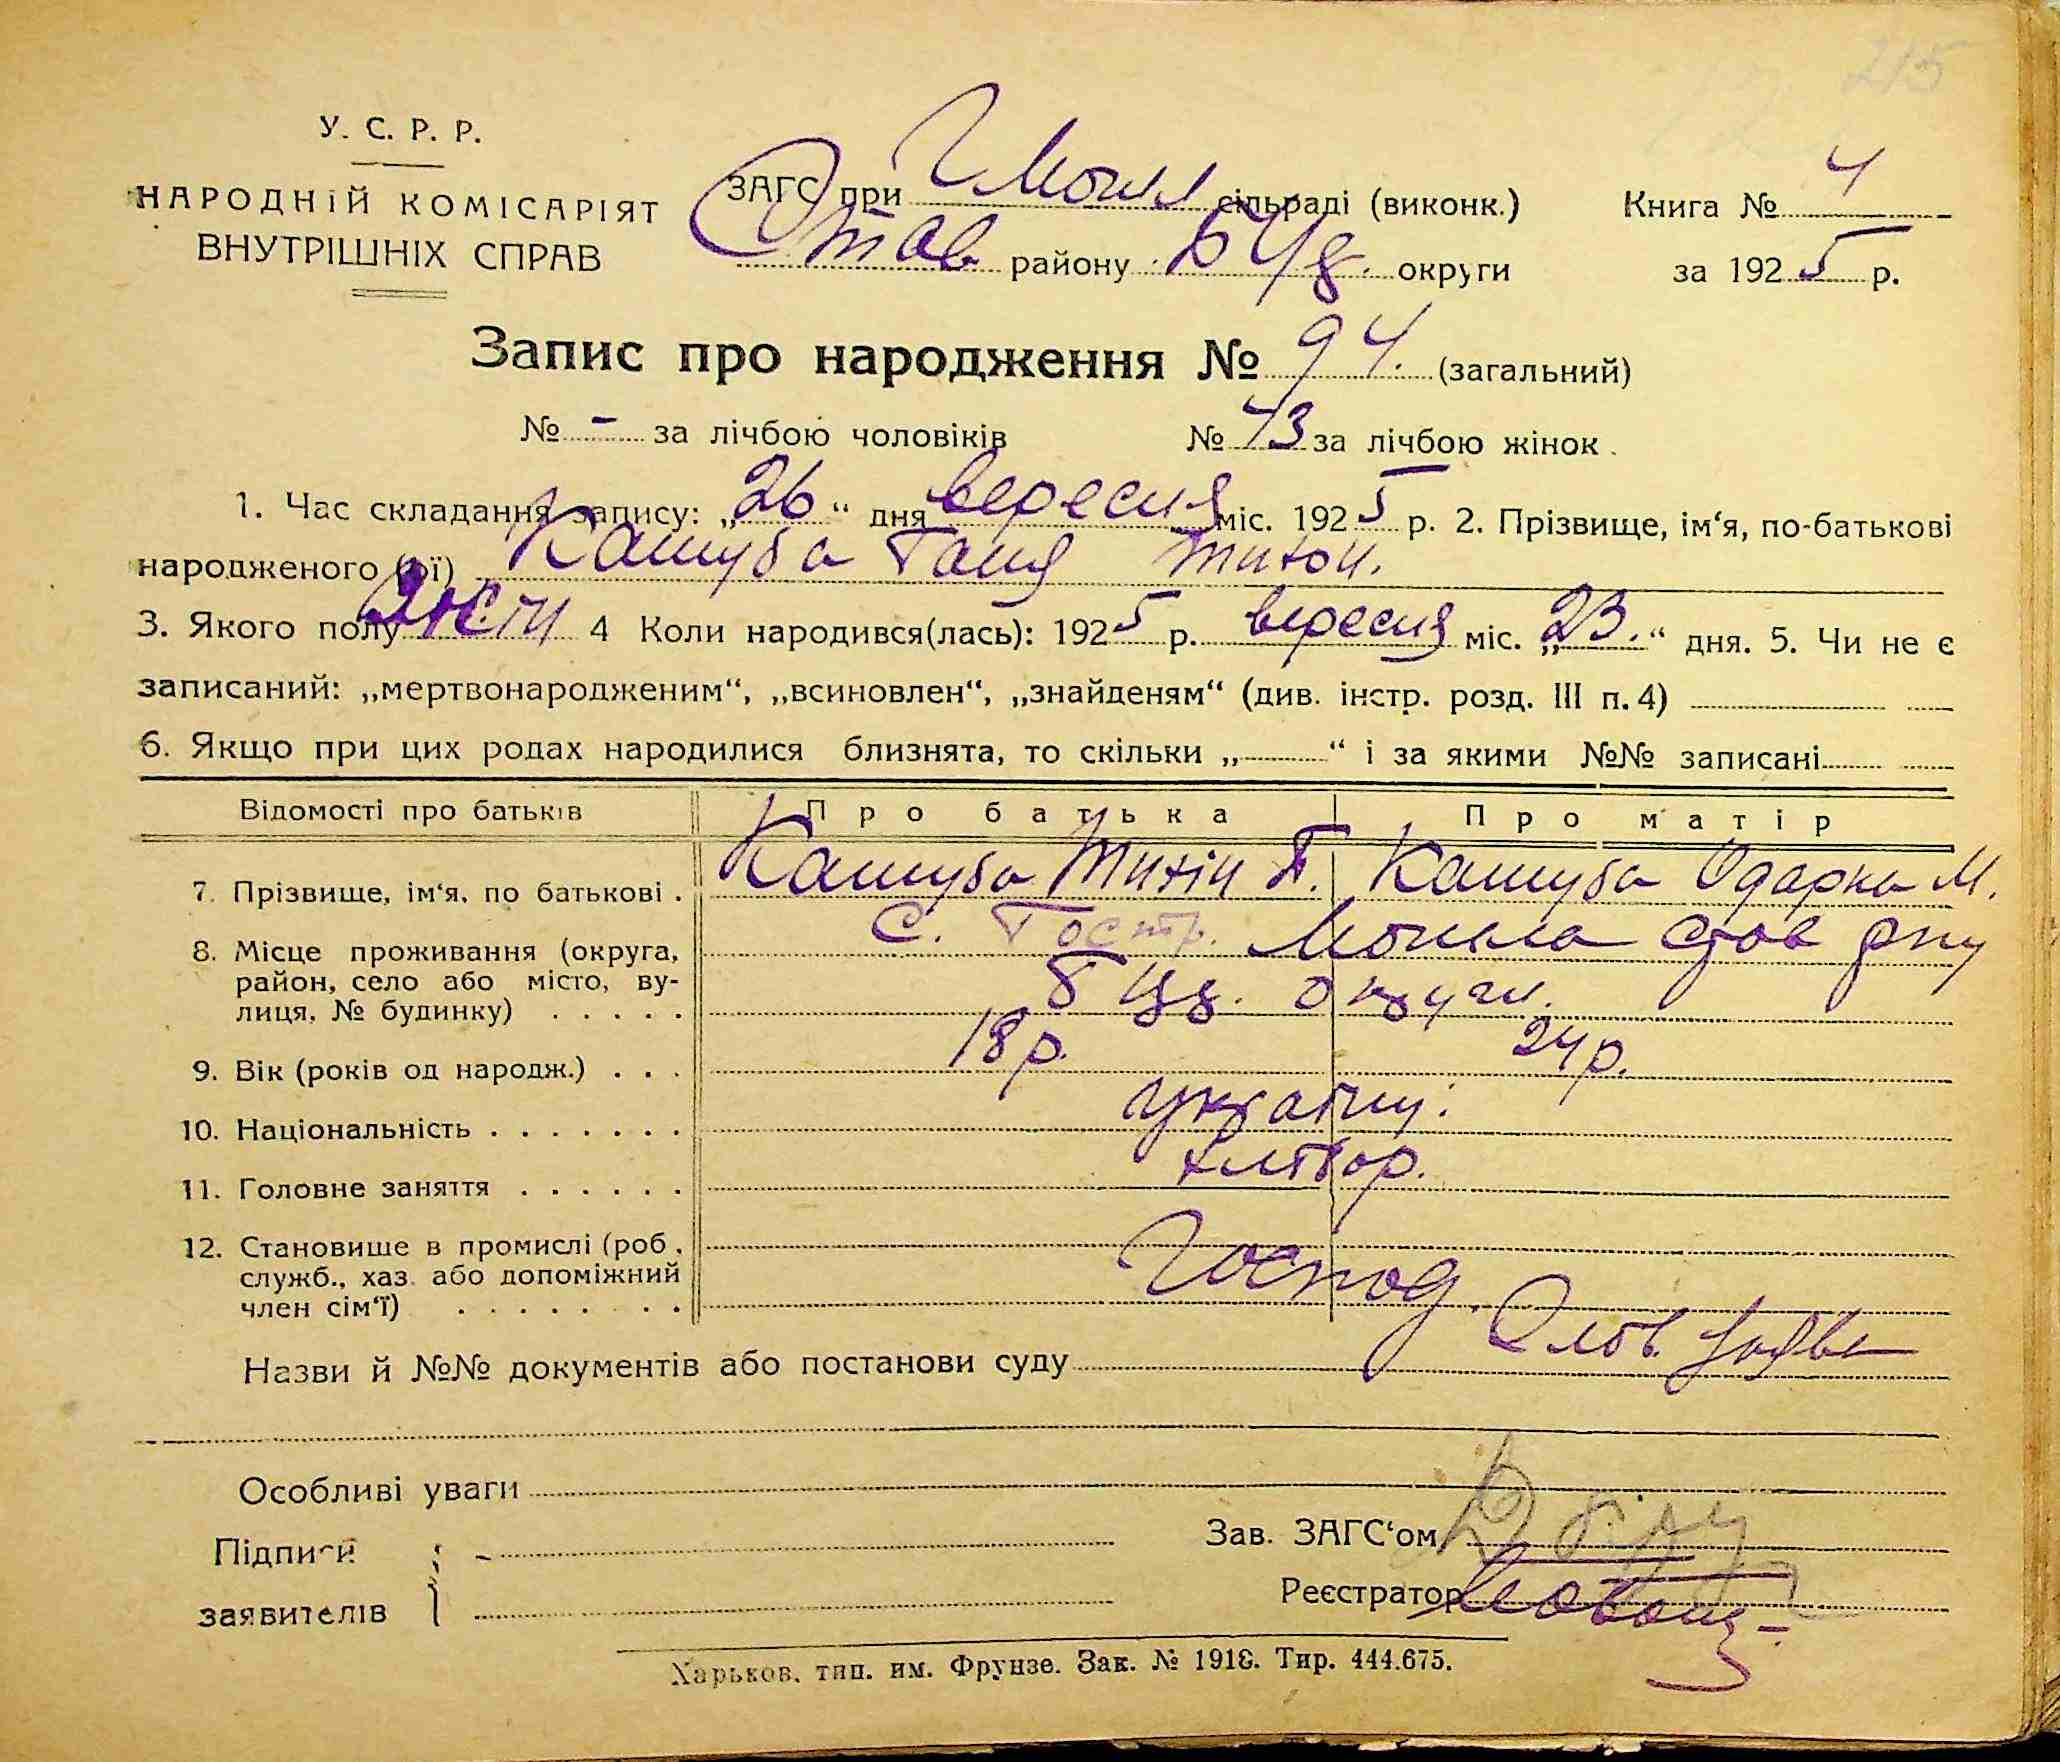 215
У. С. Р. Р.
НАРОДНІЙ КОМІСАРІЯТ
ВНУТРІШНІХ СПРАВ
ЗАГС при Г Могил сільраді (виконк.)
Став району Буд. округи
Книга № 4
за 1925 р.
Запис про народження № 94. (загальний)
№ - за лічбою чоловіків № 43 за лічбою жінок.
1. Час складання запису: „26“ дня вересня міс. 1925 р. 2. Прізвище, ім‘я, по-батькові
народженого (ої) Кашуба Ганя Тихон.
3. Якого полу жін 4 Коли народився(лась): 1925 р. вересня міс. „23.“ дня. 5. Чи не є
записаний: „мертвонародженим“, „всиновлен“, „знайденям“ (див. інстр. розд. III п. 4)
6. Якщо при цих родах народилися близнята, то скільки „ “ і за якими №№ записані
Відомості про батьків Про батька Про матір
7. Прізвище, ім‘я, по батькові . Кашуба Тихін П. Кашуба Одарка М.
8. Місце проживання (округа, район, село або місто, вулиця, № будинку) . . . . . С. Гостр. Могила Став р-ну
Б Цц. округи.
9. Вік (років од народж.) . . . 18 р. 24 р.
10. Національність . . . . . . . україн.
11. Головне заняття . . . . . . хлібор.
12. Становище в промислі (роб., служб., хаз. або допоміжний член сім‘ї) . . . . . . . . Господ.
Назви й №№ документів або постанови суду Слов. заява
Особливі уваги
Підписи
заявителів
Зав. ЗАГС‘ом
Реєстратор
Харьков, тип. им. Фрунзе. Зак. № 1918. Тир. 444.675.